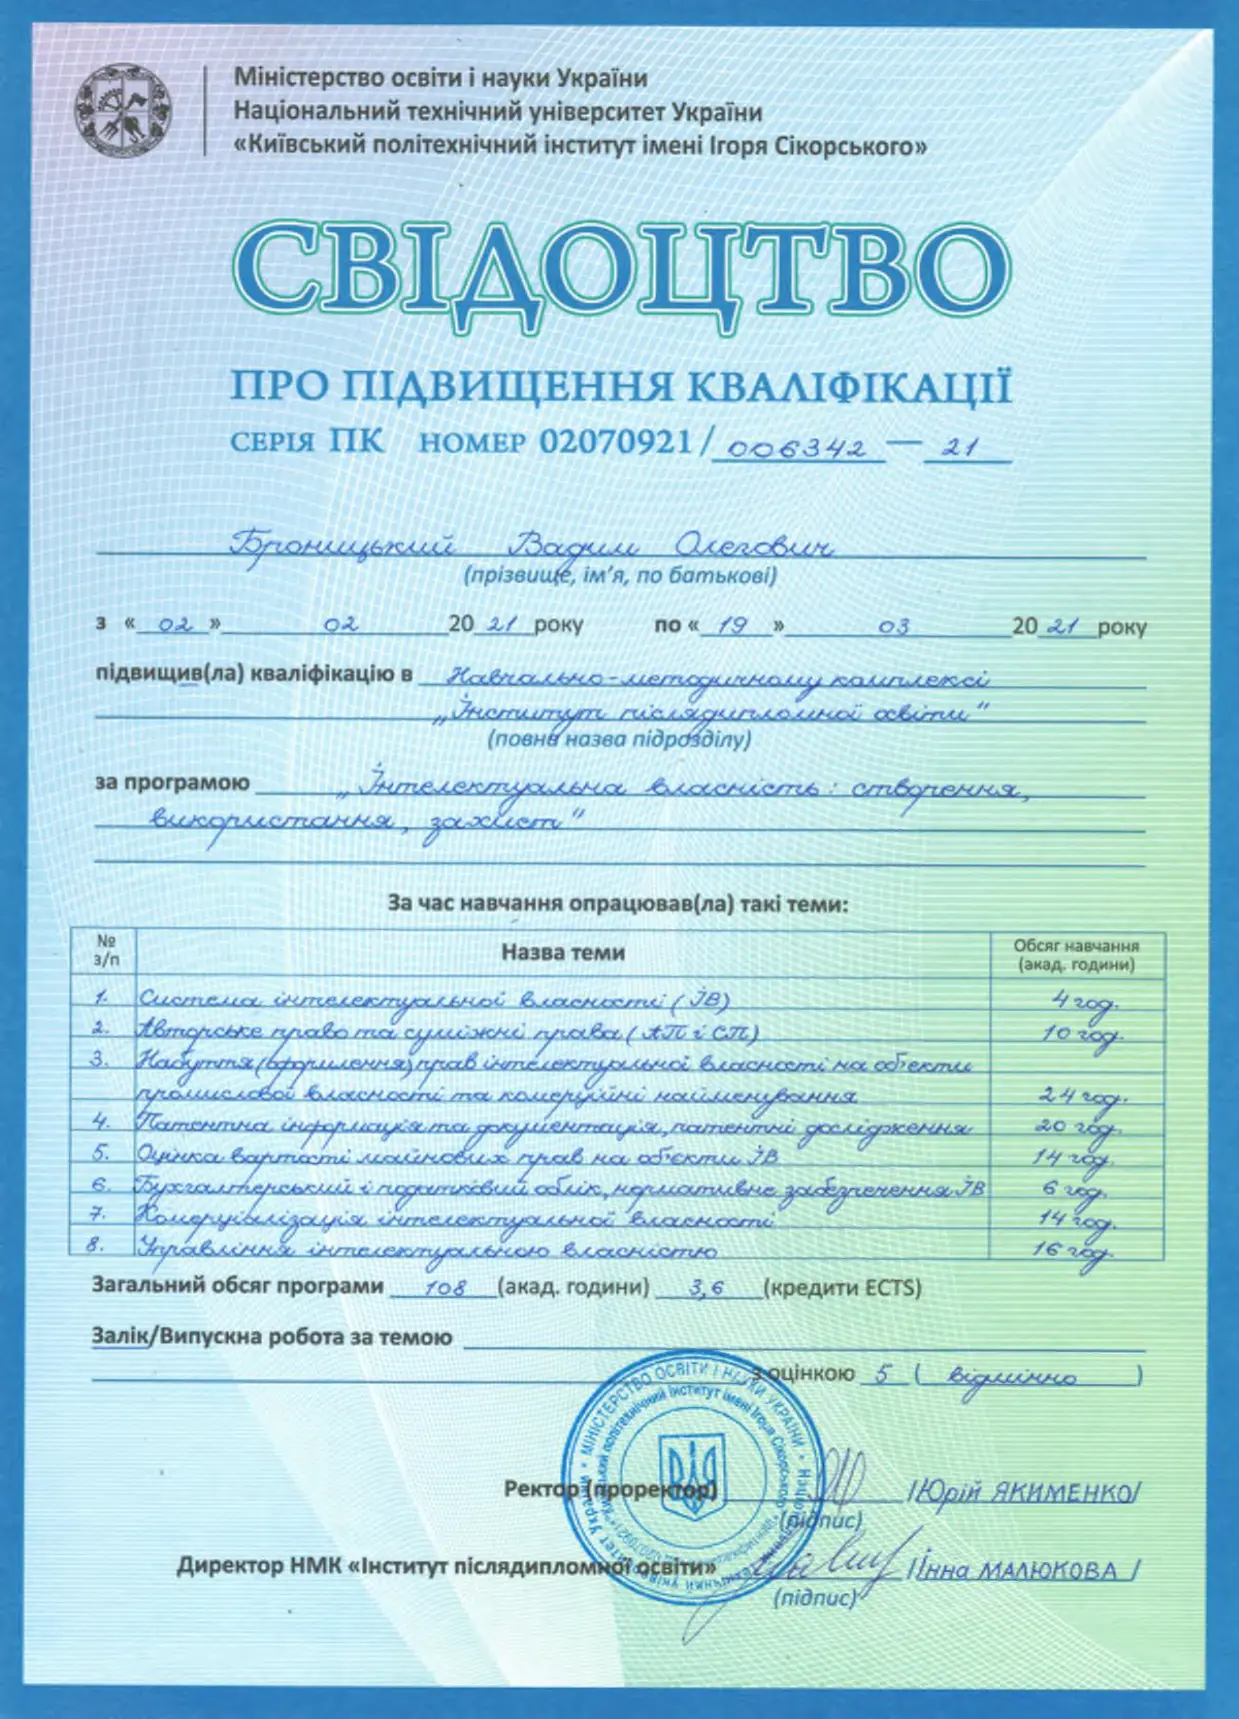 Міністерство освіти і науки України
Національний технічний університет України
«Київський політехнічний інститут імені Ігоря Сікорського»
СВІДОЦТВО
ПРО ПІДВИЩЕННЯ КВАЛІФІКАЦІЇ
СЕРІЯ ПК НОМЕР 02070921/006342 — 21
Броницький Вадим Олегович
(прізвище, ім’я, по батькові)
з «02» 02 2021 року по «19» 03 2021 року
підвищив(ла) кваліфікацію в Навчально-методичному комплексі
„Інститут післядипломної освіти"
(повна назва підрозділу)
за програмою „Інтелектуальна власність: створення,
використання, захист"
За час навчання опрацював(ла) такі теми:
№ з/п Назва теми Обсяг навчання (акад. години)
1. Система інтелектуальної власності (ІВ) 4 год.
2. Авторське право та суміжні права (АП і СП) 10 год.
3. Набуття (оформлення) прав інтелектуальної власності на об'єкти
промислової власності та комерційні найменування 24 год.
4. Патентна інформація та документація, патентні дослідження 20 год.
5. Оцінка вартості майнових прав на об'єкти ІВ 14 год.
6. Бухгалтерський і податковий облік, нормативне забезпечення ІВ 6 год.
7. Комерціалізація інтелектуальної власності 14 год.
8. Управління інтелектуальною власністю 16 год.
Загальний обсяг програми 108 (акад. години) 3,6 (кредити ECTS)
Залік/Випускна робота за темою
з оцінкою 5 (відмінно)
МІНІСТЕРСТВО ОСВІТИ І НАУКИ УКРАЇНИ
Київський політехнічний інститут імені Ігоря Сікорського
Ректор (проректор) /Юрій ЯКИМЕНКО/
(підпис)
Директор НМК «Інститут післядипломної освіти» /Інна МАЛЮКОВА/
(підпис)